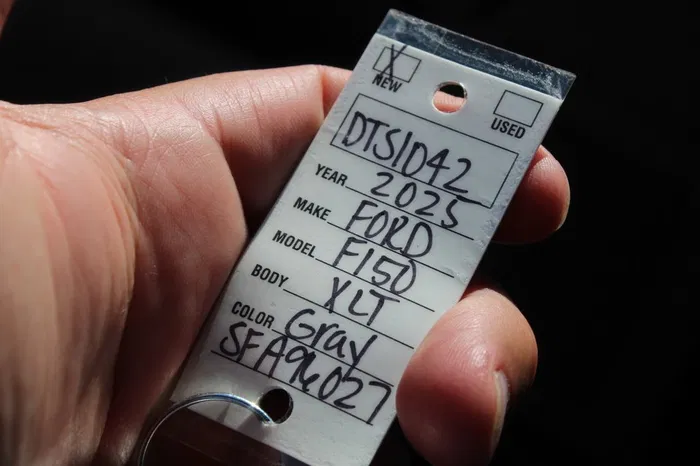 X
NEW
USED
DTS1042
YEAR 2025
MAKE FORD
MODEL F150
BODY XLT
COLOR Gray
SFA96027